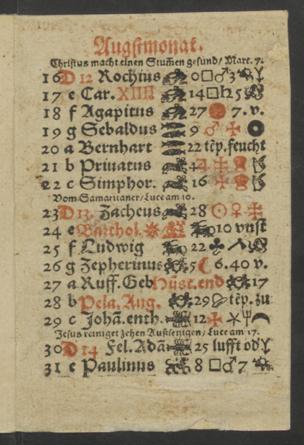 Augstmonat.
Christus macht einen Stum̃en gesund/ Marc. 7.
16 D 12 Rochius 0□♂3
17 e Car. XIIII 14□♄25
18 f Agapitus 27 7. v.
19 g Sebaldus 9 ♂
20 a Bernhart 22 tẽp. feucht
21 b Priuatus 4
22 c Simphor. 16
Vom Samaritaner/ Luce am 10.
23 D 13. Zacheus 28 ☉♀
24 e Barthol. 10 vnst
25 f Ludwig 22
26 g Zepherinus 5☾ 6.40 v.
27 a Ruff. Geb Hũst. end 17
28 b Pela. Aug. 29 tẽp. zu
29 c Johã. enth. 12
Jesus reiniget zehen Aussetzigen/ Luce am 17.
30 D 14 Fel. Adã 25 lufft
31 e Paulinus 8□♂7